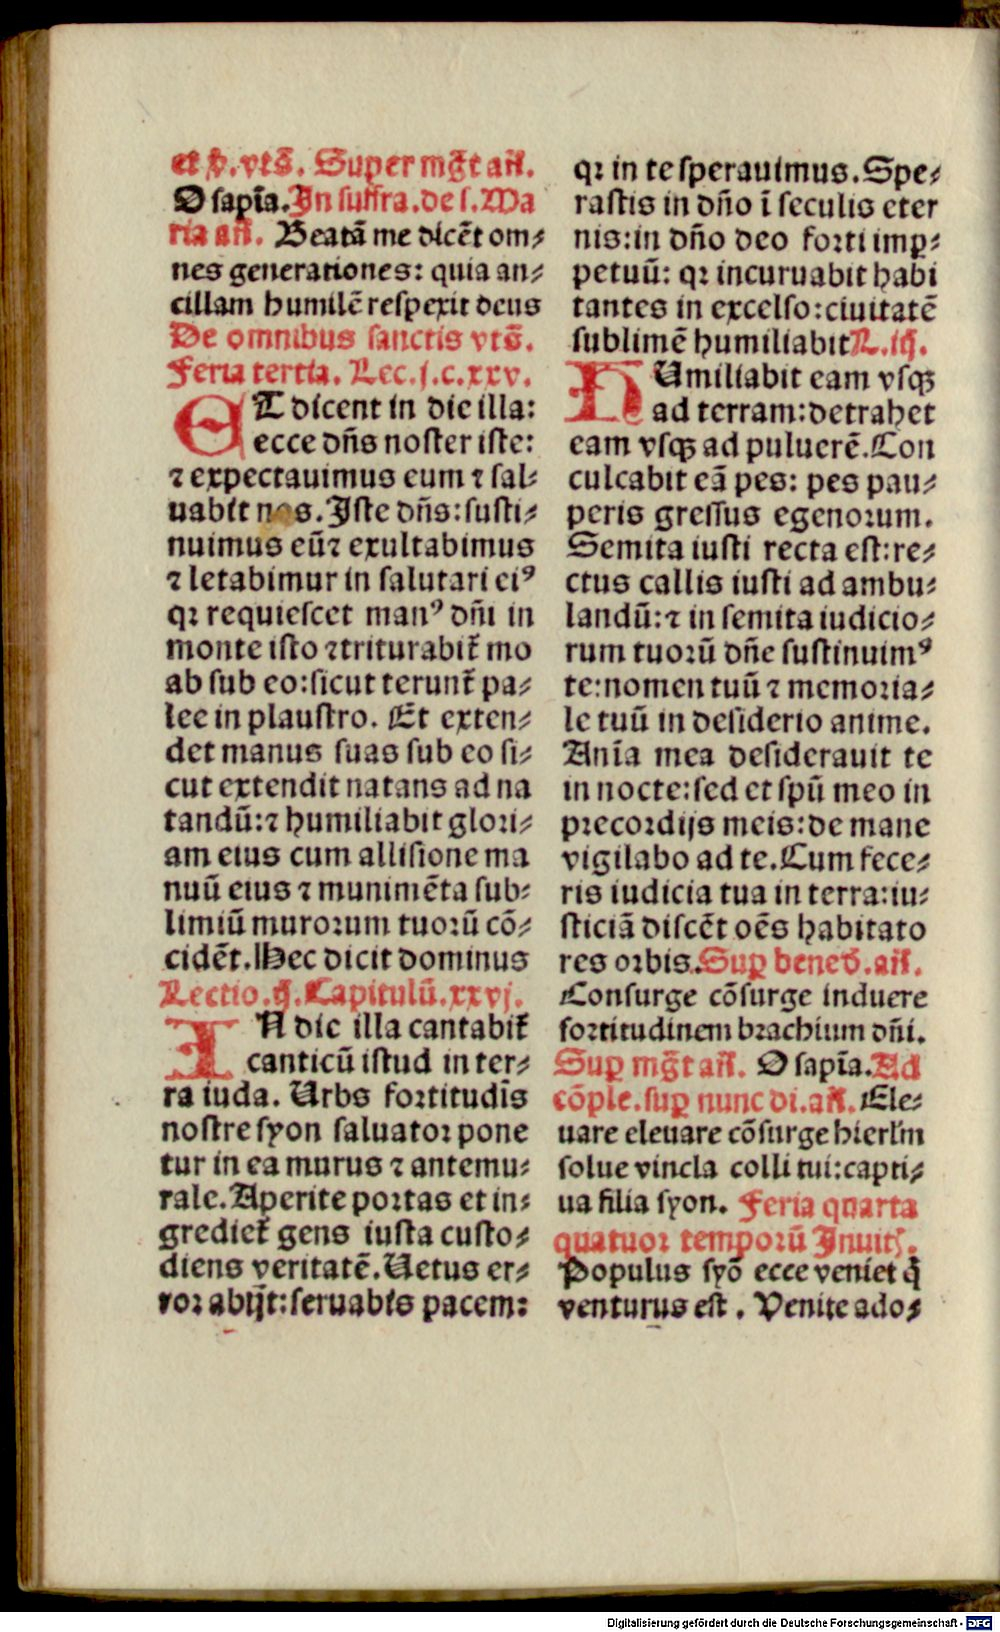 et ꝟ. vtſ̄. Super mg̃t an̄.
O sapīa. In suffra. de s. Ma
ria an̄. Beatā me dicēt om⸗
nes generationes: quia an⸗
cillam humilē respexit deus
De omnibus sanctis vtſ̄.
Feria tertia. Lec. j. c. xxv.
ET dicent in die illa:
ecce dn̄s noster iste:
⁊ expectauimus eum ⁊ sal⸗
uabit nos. Iste dn̄s: susti⸗
nuimus eū⁊ exultabimus
⁊ letabimur in salutari eiꝰ
qꝛ requiescet manꝰ dn̄i in
monte isto ⁊triturabit̃ mo
ab sub eo: sicut terunt̃ pa⸗
lee in plaustro. Et exten⸗
det manus suas sub eo si⸗
cut extendit natans ad na
tandū: ⁊ humiliabit glori⸗
am eius cum allisione ma
nuū eius ⁊ munimēta sub⸗
limiū murorum tuorū cō⸗
cidēt. Hec dicit dominus
Lectio. ij. Capitulū. xxvj.
IN die illa cantabit̃
canticū istud in ter⸗
ra iuda. Urbs fortitudīs
nostre syon saluator pone
tur in ea murus ⁊ antemu⸗
rale. Aperite portas et in⸗
grediet̃ gens iusta custo⸗
diens veritatē. Uetus er⸗
ror abijt: seruabis pacem:
qꝛ in te sperauimus. Spe⸗
rastis in dn̄o ī seculis eter
nis: in dn̄o deo forti imꝑ⸗
petuū: qꝛ incuruabit habi
tantes in excelso: ciuitatē
sublimē humiliabit L. iij.
HUmiliabit eam vsqꝫ
ad terram: detrahet
eam vsqꝫ ad puluerē. Con
culcabit eā pes: pes pau⸗
peris gressus egenorum.
Semita iusti recta est: re⸗
ctus callis iusti ad ambu⸗
landū: ⁊ in semita iudicio⸗
rum tuorū dn̄e sustinuimꝰ
te: nomen tuū ⁊ memoria⸗
le tuū in desiderio anime.
Anīa mea desiderauit te
in nocte: sed et spū meo in
precordijs meis: de mane
vigilabo ad te. Cum fece⸗
ris iudicia tua in terra: iu⸗
sticiā discēt oēs habitato
res orbis. Suꝑ bened̄. an̄.
Consurge cōsurge induere
fortitudinem brachium dn̄i.
Suꝑ mg̃t an̄. O sapīa. Ad
cōple. suꝑ nunc di. an̄. Ele⸗
uare eleuare cōsurge hierl̄m
solue vincla colli tui: capti⸗
ua filia syon. Feria quarta
quatuor temporū Inuit.
Populus syō ecce veniet q̄
venturus est. Venite ado⸗
Digitalisierung gefördert durch die Deutsche Forschungsgemeinschaft - DFG